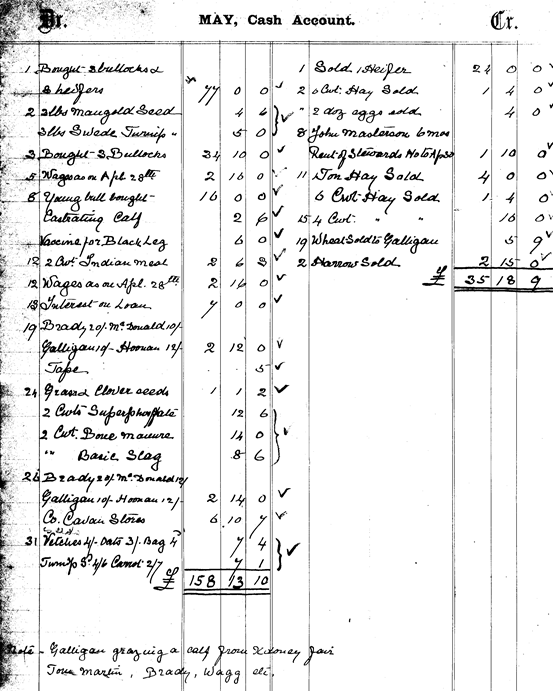 Dr. MAY, Cash Account. Cr.
1 Bought 3 bullocks &
3 heifers 77 0 0
2 3lbs Mangold Seed 4 6
3lbs Swede Turnip " 5 0
3 Bought 3 Bullocks 34 10 0
5 Wages as on Apl 28th 2 16 0
8 Young bull bought 16 0 0
Castrating Calf 2 6
Vaccine for Black Leg 6 0
12 2 Cwt Indian meal 2 6 3
12 Wages as on Apl. 28th 2 16 0
13 Interest on Loan 7 0 0
19 Brady 20/- McDonald 10/-
Galligan 10/- Hoonan 12/- 2 12 0
Tape 5
24 Grass & Clover seeds 1 1 2
2 Cwts Superphosphate 12 6
2 Cwt. Bone manure 14 0
"" Basic Slag 8 6
26 Brady 20/- McDonald 12/
Galligan 10/- Hoonan 12/- 2 14 0
Co. Cavan Stores 6 10 7
31 Vetches 4/- Oats 3/- Bag 4 7 4
Turnip Sd 4/6 Carrot 2/7 7 1
£ 158 13 10
1 Sold 1 Heifer 24 0 0
2 6 Cwt. Hay Sold 1 4 0
" 2 doz eggs sold 4 0
8 John Masterson 6 mos
Rent of Stewards Ho to Ap 30 1 10 0
11 1 Ton Hay Sold 4 0 0
6 Cwt Hay Sold 1 4 0
15 4 Cwt. " " 16 0
19 Wheat Sold to Galligan 5 9
2 Harrow Sold 2 15 0
£ 35 18 9
Note - Galligan grazing a calf from Kiloney fair
Tom Martin, Brady, Wagg etc.